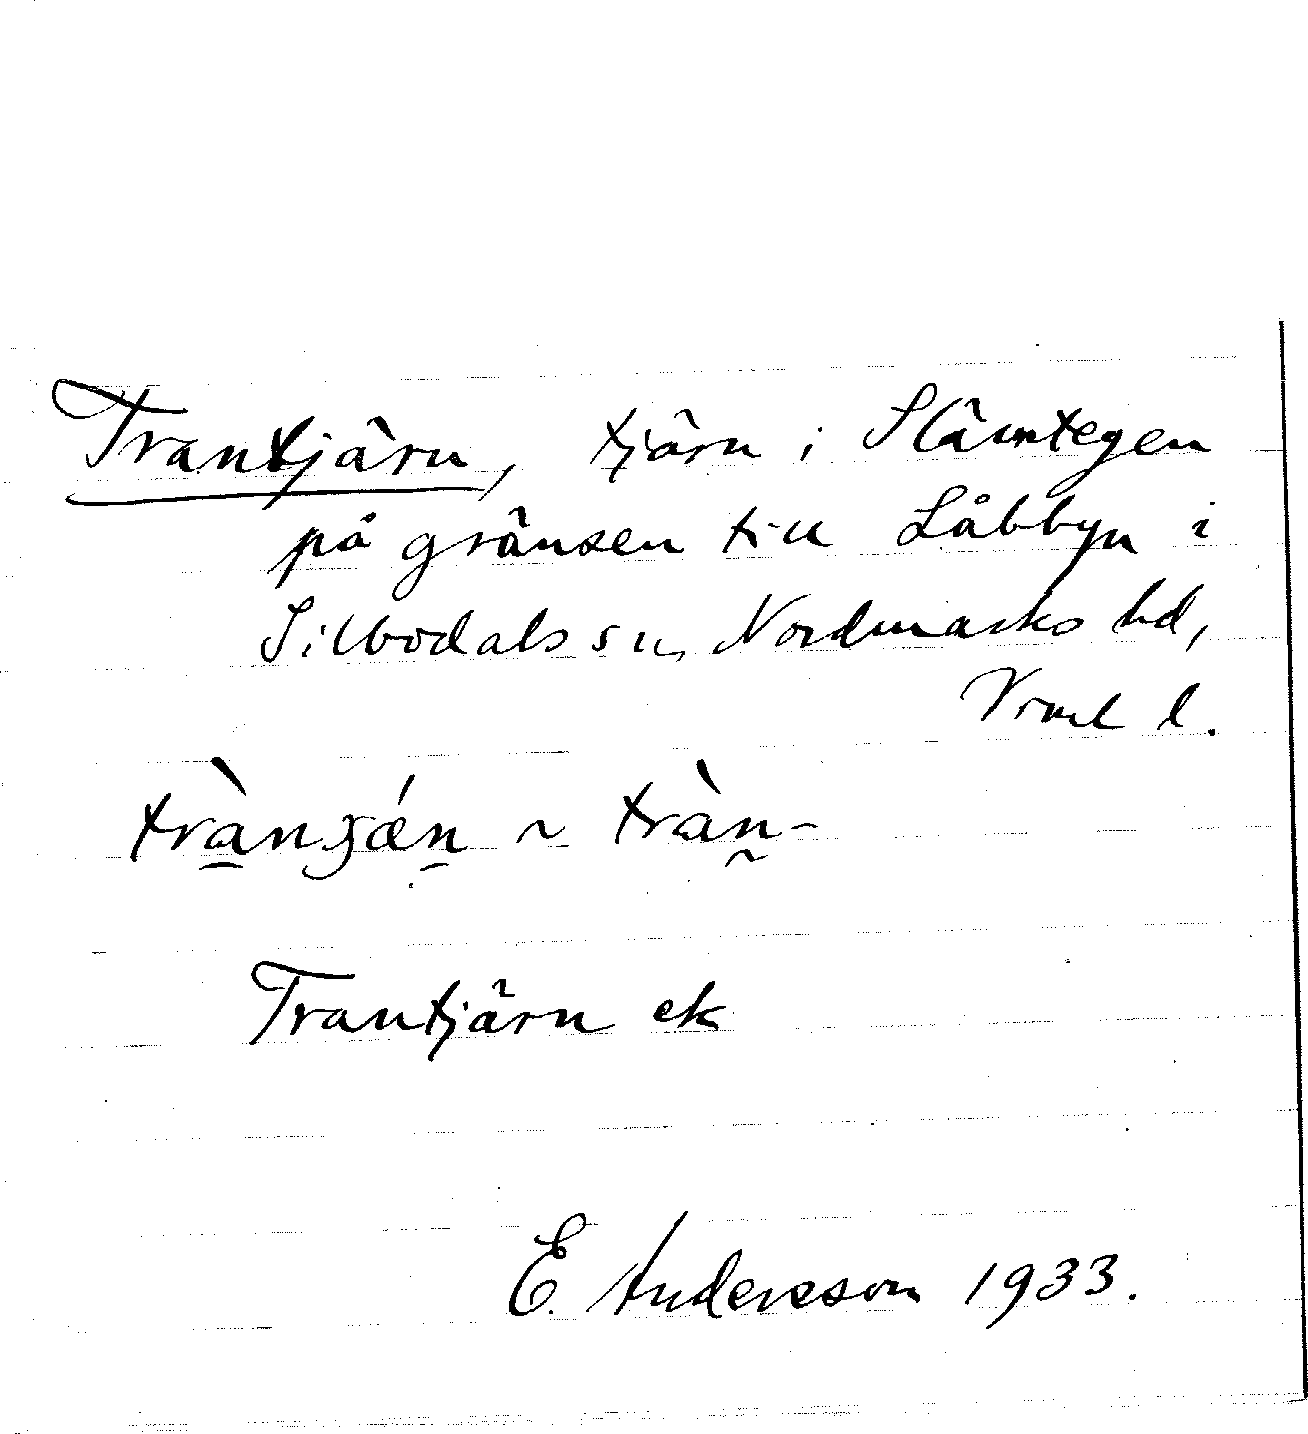 Trantjärn, tjärn i Slämtegen
på gränsen till Låbbyn i
Silbodals sn, Nordmarks hd,
Vrml l.
Trantjärn ek
E. Andersson 1933.